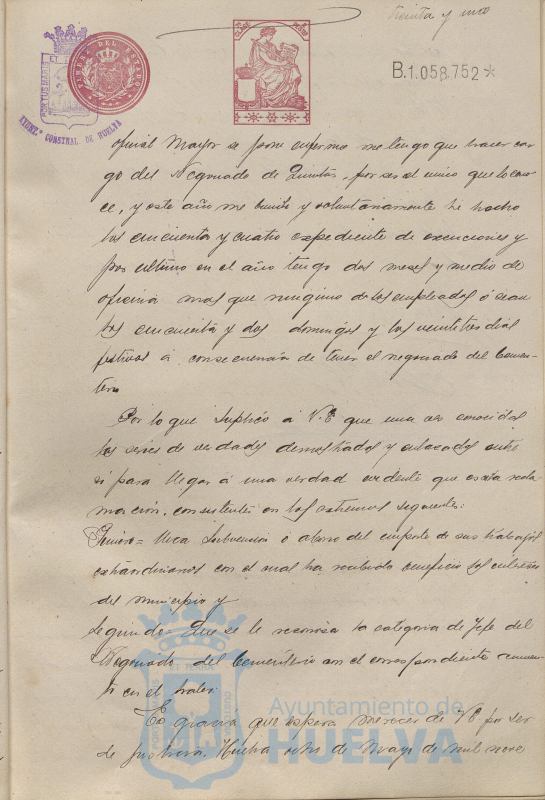 treinta y uno
B.1.058.752*
TIMBRE DEL ESTADO
PORTUS MARIS ET TERRÆ
AYUNT.º CONSTNAL DE HUELVA
oficial Mayor se pone enfermo me tengo que hacer car
go del Negociado de Quintas, por ser el unico que lo cono
ce, y este año me y voluntariamente he hecho
los cincuenta y cuatro expediente de exenciones y
por ultimo en el año tengo dos meses y medio de
oficina mas que ninguno de los empleados ó sean
los cincuenta y dos domingos y los veintitres dias
festivos á consecuencia de tener el negociado del Cemen-
terio
Por lo que Suplico á V.E que una vez conocidas
las series de verdades demostradas y enlazadas entre
si para llegar á una verdad evidente que es esta recla
mación, consistentes en los extremos siguientes:
Primero= Una Subvencion ó abono del importe de sus trabajos
extraordinarios con el cual ha recibido beneficio los intereses
del municipio y
Segundo= Que se le reconosca la categoria de Jefe del
Negociado del Cementerio con el correspondiente aumen-
to en el haber.
Es gracia que espera merecer de VE por ser
de justicia. Huelva ocho de Mayo de mil nove
Ayuntamiento de
HUELVA